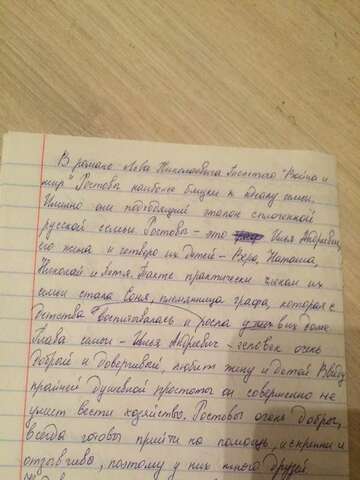 В романе Льва Николаевича Толстого "Война и
мир" Ростовы наиболее близки к идеалу семьи.
Именно они подходящий эталон сплоченной
русской семьи. Ростовы - это Илья Андреевич,
его жена и четверо их детей - Вера, Наташа,
Николай и Петя. Также практически членом их
семьи стала Соня, племянница графа, которая с
детства воспитывалась и росла у них в доме
Глава семьи - Илья Андреевич - человек очень
добрый и доверчивый, любит жену и детей. Ввиду
крайней душевной простоты он совершенно не
умеет вести хозяйство. Ростовы очень добры,
всегда готовы прийти на помощь, искренни и
отзывчивы, поэтому у них много друзей.